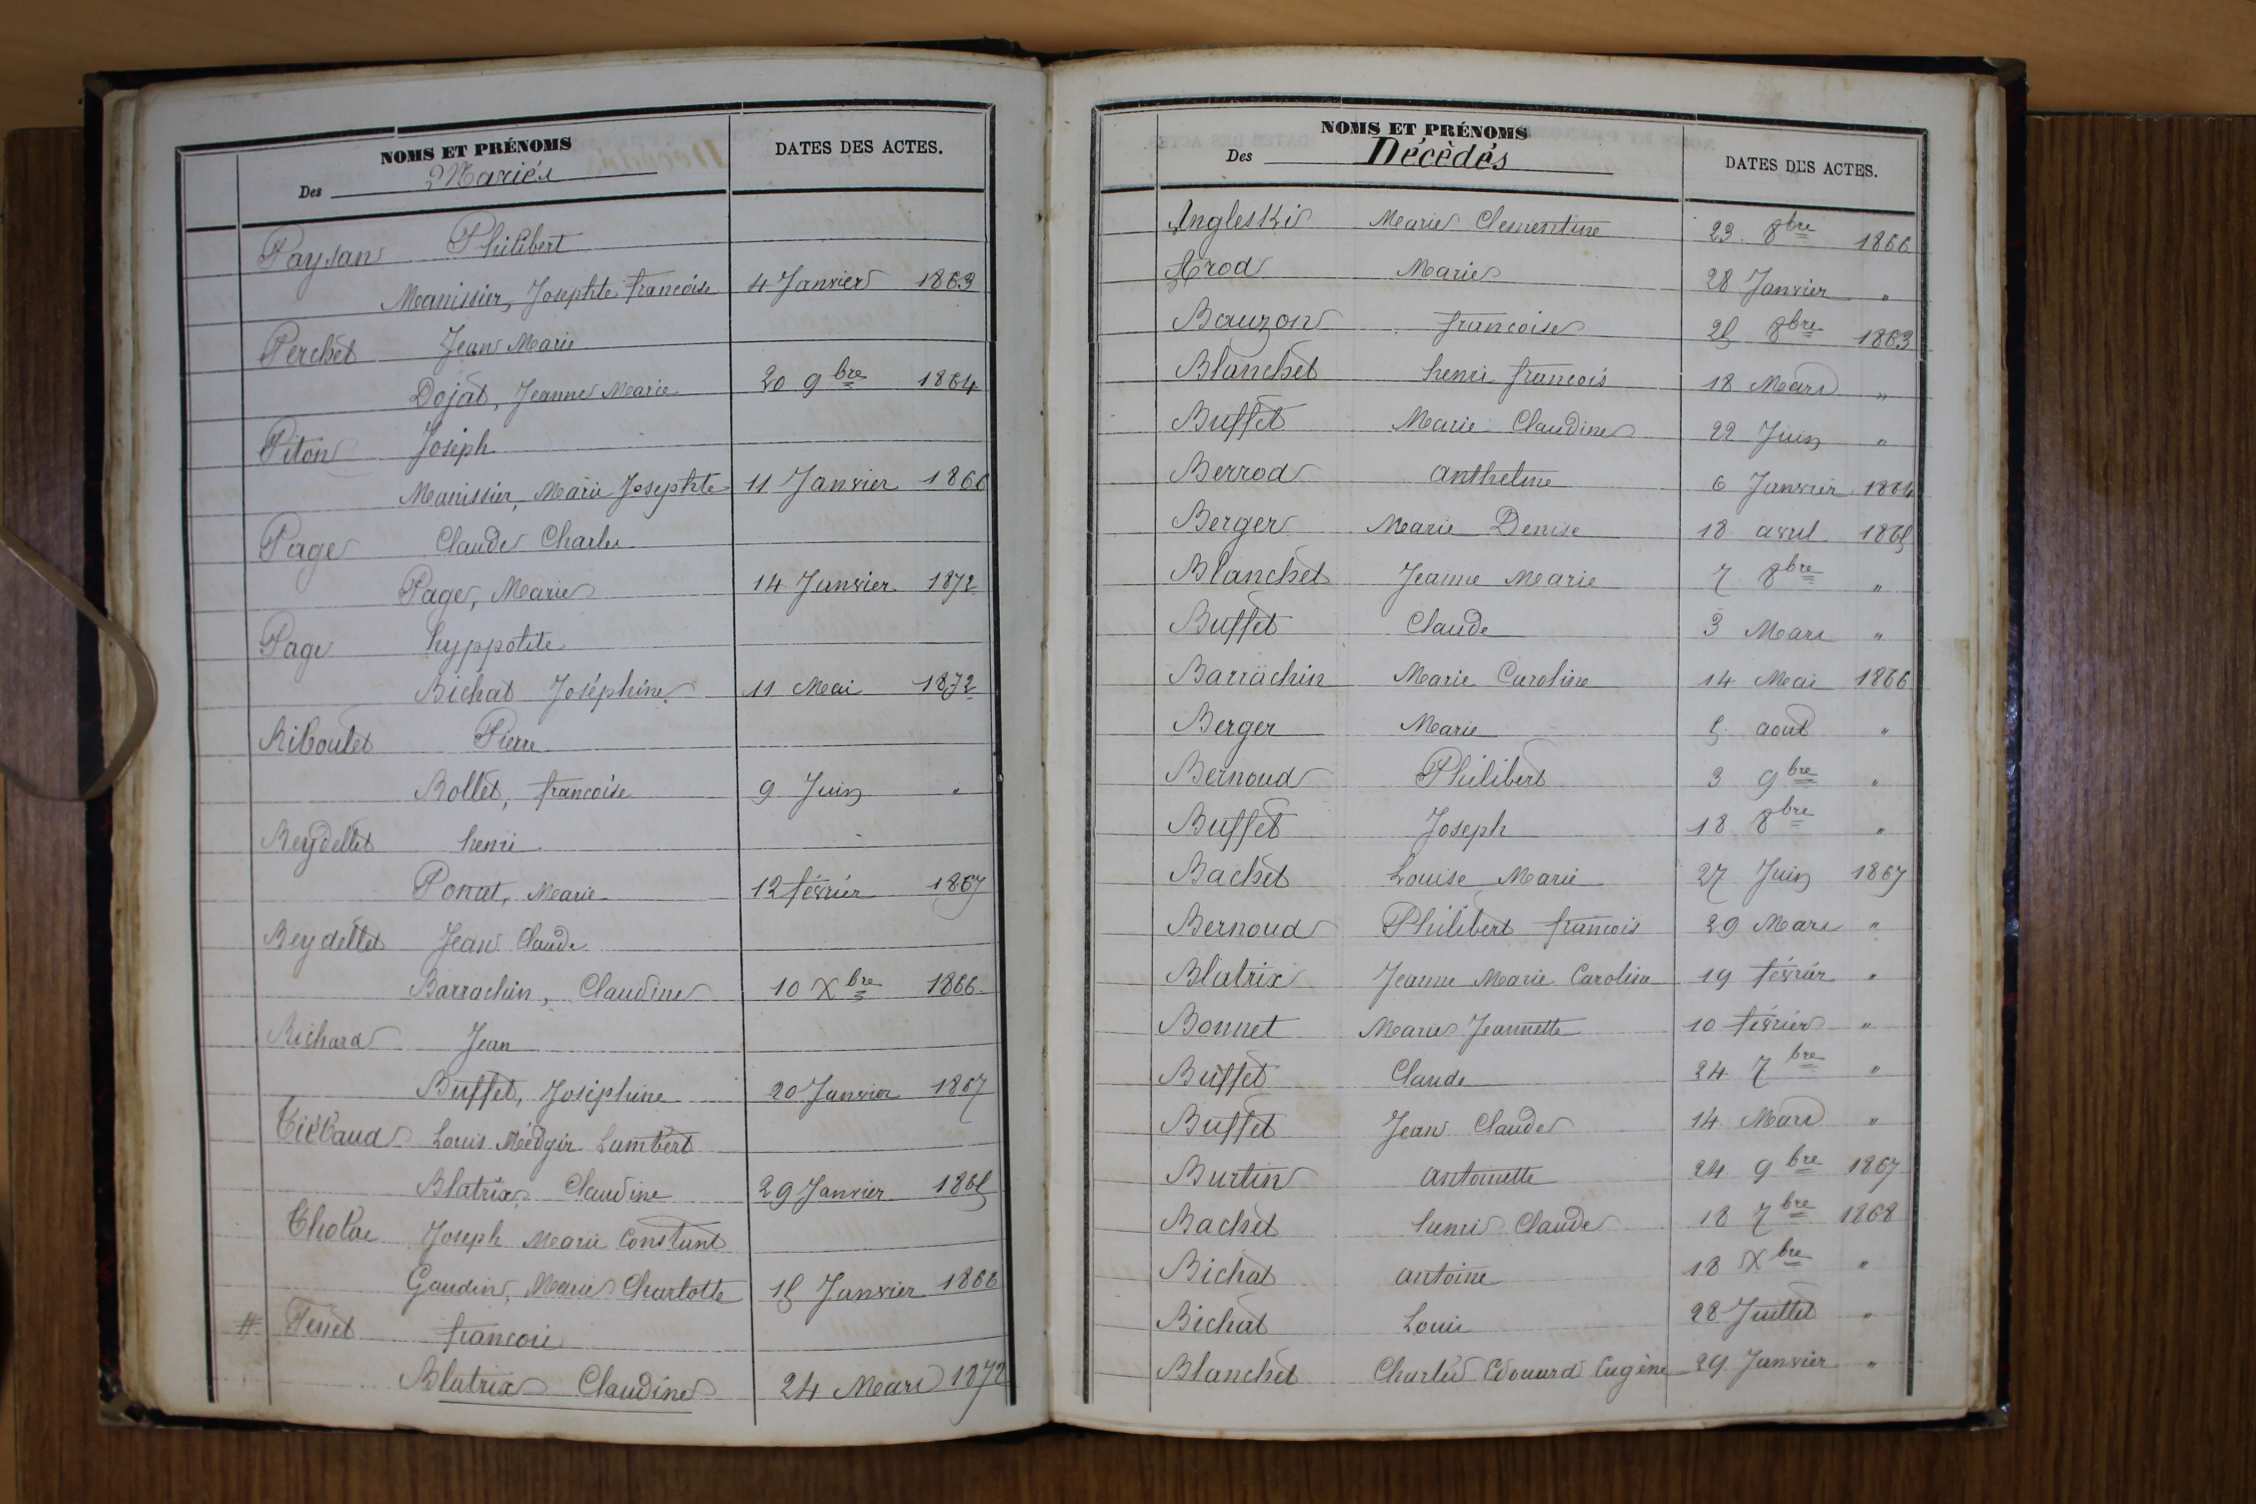 NOMS ET PRÉNOMS
DATES DES ACTES.
Des Mariés
Paysan Philibert
Manissier, Josephte françoise 4 Janvier 1863
Perchet Jean Marie
Dojat, Jeanne Marie 20 9bre 1864
Piton Joseph
Manissier, Marie Josephte 11 Janvier 1866
Page Claude Charles
Page, Marie 14 Janvier 1872
Page hyppolite
Bichat Joséphine 11 Mai 1872
Riboulet Pierre
Bollet, françoise 9 Juin "
Reydellet henri
Ponat, Marie 12 février 1867
Reydellet Jean Claude
Barrachin, Claudine 10 Xbre 1866
Richard Jean
Buffet, Joséphine 20 Janvier 1867
Louis Lambert
Blatrix Claudine 29 Janvier 1865
Joseph Marie Constant
Gaudin, Marie Charlotte 15 Janvier 1866
# françois
Blatrix Claudine 24 Mars 1872
NOMS ET PRÉNOMS
Des Décédés
DATES DES ACTES.
Angleski Marie Clementine 23 8bre 1866
Arod Marie 28 Janvier "
Bauzon françoise 25 8bre 1863
Blanchet henri françois 18 Mars "
Buffet Marie Claudine 22 Juin "
Berrod anthelme 6 Janvier 1864
Berger Marie Denise 18 avril 1865
Blanchet Jeanne Marie 7 8bre "
Buffet Claude 3 Mars "
Barrachin Marie Caroline 14 Mai 1866
Berger Marie 5 aout "
Bernoud Philibert 3 9bre "
Buffet Joseph 18 8bre "
Bachet Louise Marie 27 Juin 1867
Bernoud Philibert françois 29 Mars "
Blatrix Jeanne Marie Carolina 19 février "
Bonnet Marie Jeannette 10 février "
Buffet Claude 24 7bre "
Buffet Jean Claude 14 Mars "
Burtin antoinette 24 9bre 1867
Bachet henri Claude 18 7bre 1868
Bichat antoine 18 Xbre "
Bichat Louis 28 Juillet "
Blanchet Charles Edouard Eugène 29 Janvier "